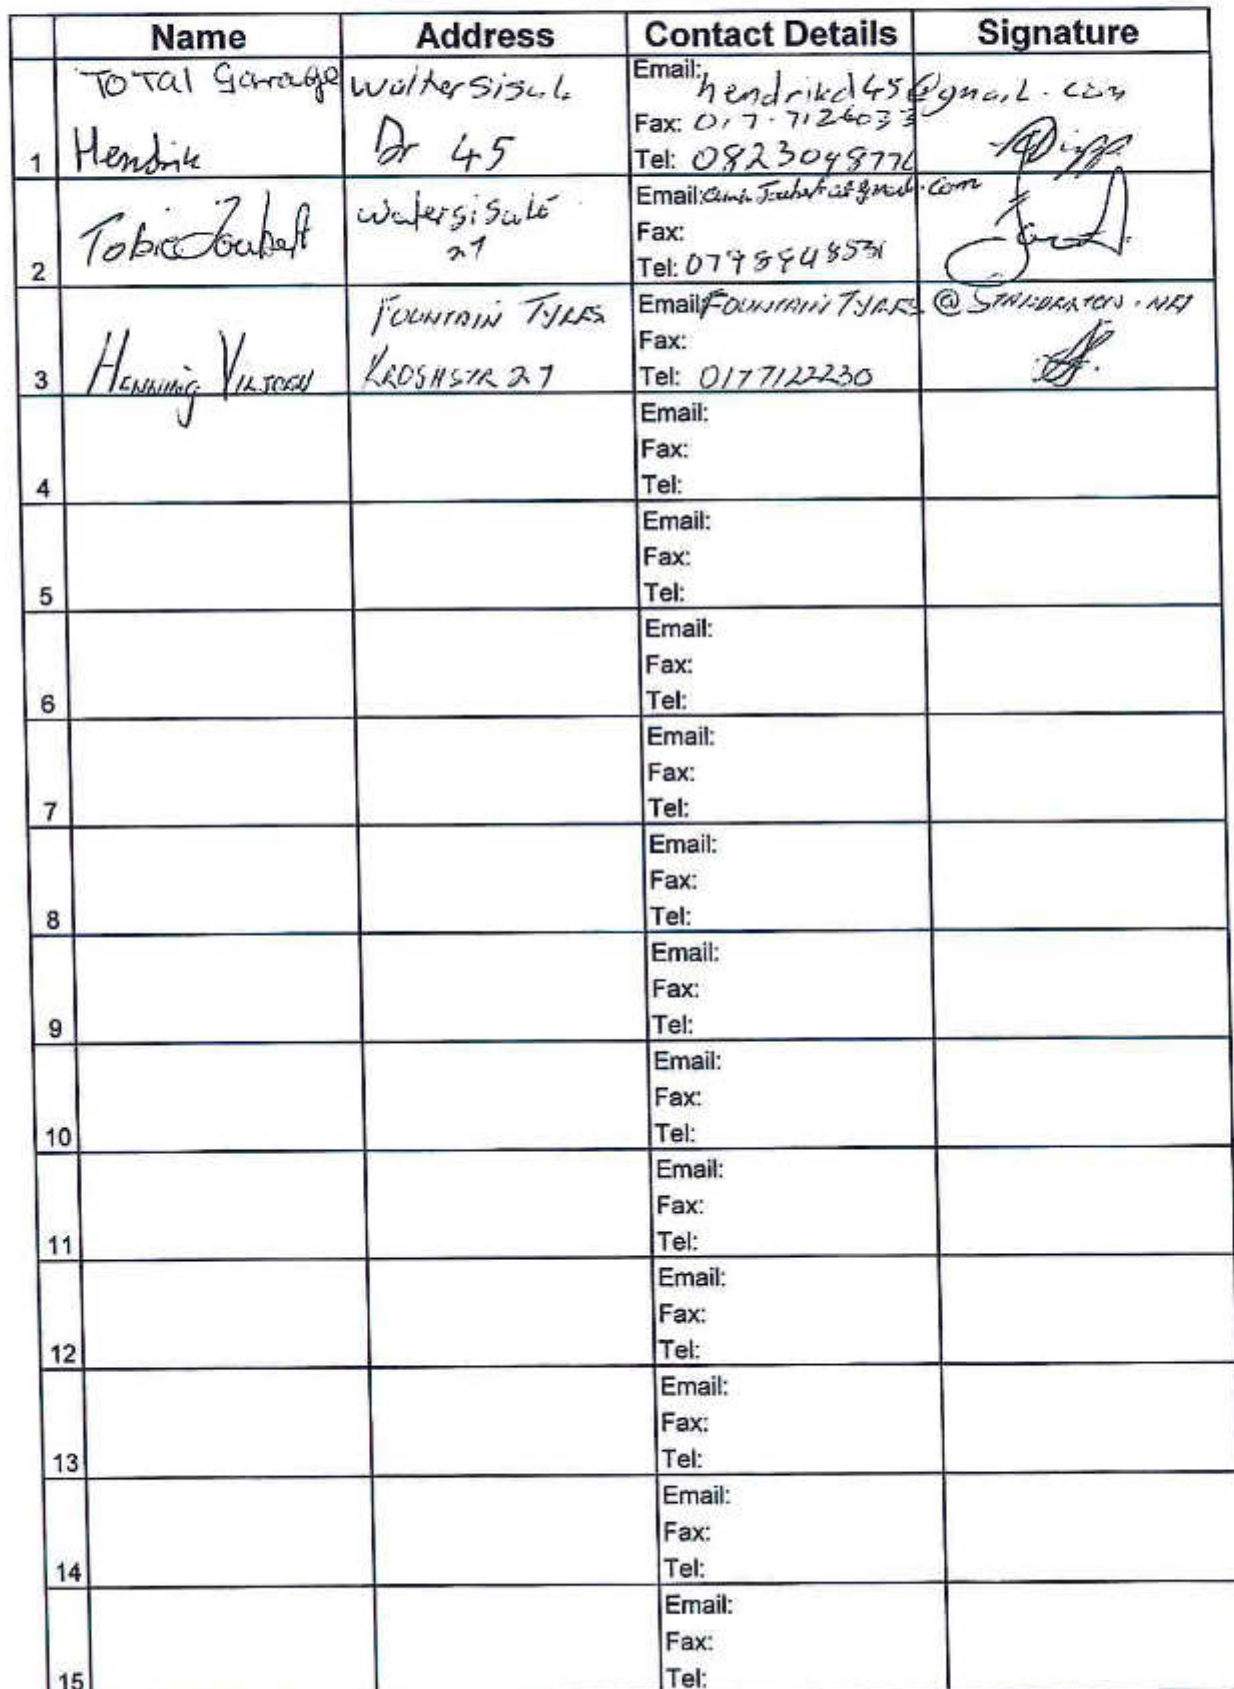 Name Address Contact Details Signature
1
Total Garage
Hendrik
Walter Sisulu
Dr 45
Email: hendrikd45@gmail.com
Fax: 017-7126033
Tel: 0823048776
2
Tobie Joubert
27
Email: gmail.com
Fax:
Tel:
3
Henning Viljoen
Fountain Tyres
27
Email: Fountain Tyres @
Fax:
Tel: 0177122230
4
Email:
Fax:
Tel:
5
Email:
Fax:
Tel:
6
Email:
Fax:
Tel:
7
Email:
Fax:
Tel:
8
Email:
Fax:
Tel:
9
Email:
Fax:
Tel:
10
Email:
Fax:
Tel:
11
Email:
Fax:
Tel:
12
Email:
Fax:
Tel:
13
Email:
Fax:
Tel:
14
Email:
Fax:
Tel:
15
Email:
Fax:
Tel: